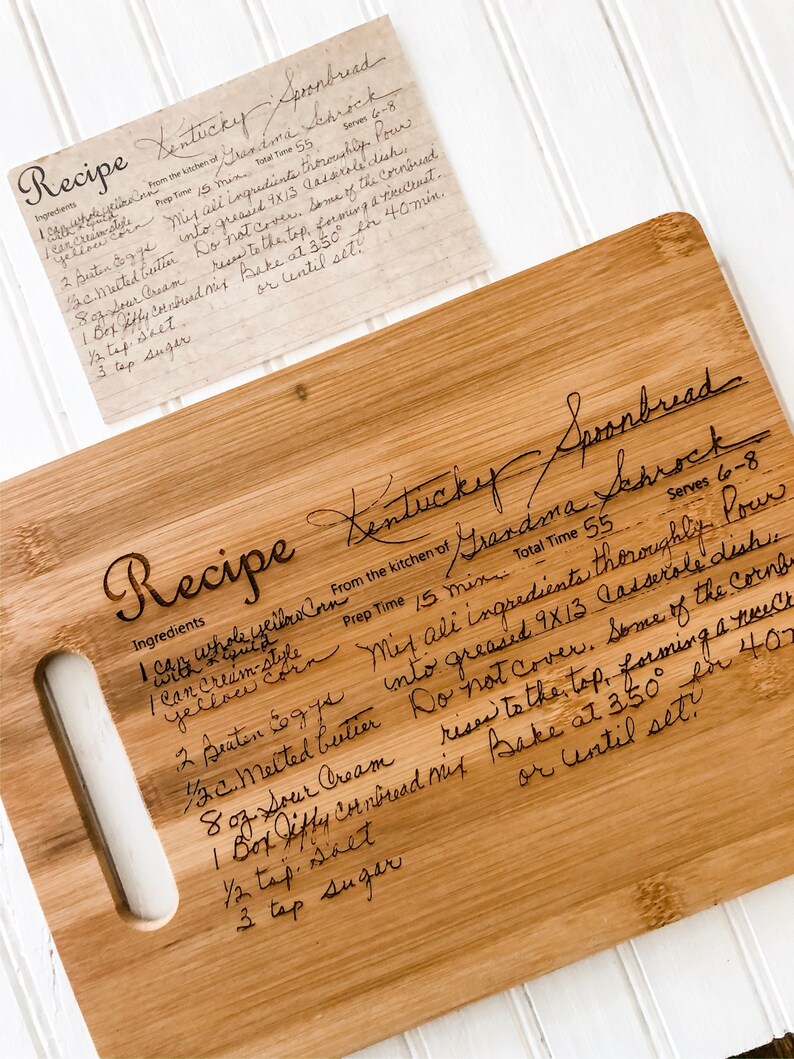 Kentucky Spoonbread
Recipe From the kitchen of Grandma Schrock
Prep Time 15 min. Total Time 55 Serves 6-8
Ingredients
1 can whole yellow Corn
with liquid
1 can cream-style
yellow corn
2 Beaten Eggs
1/2 c. Melted butter
8 oz Sour Cream
1 Box Jiffy cornbread mix
1/2 tsp. salt
3 tsp sugar
Mix all ingredients thoroughly. Pour
into greased 9X13 Casserole dish.
Do not cover. Some of the cornbread
rises to the top, forming a nice crust.
Bake at 350° for 40 min.
or until set.
Kentucky Spoonbread
Recipe From the kitchen of Grandma Schrock
Prep Time 15 min. Total Time 55 Serves 6-8
Ingredients
1 can whole yellow Corn
with liquid
1 can cream-style
yellow corn
2 Beaten Eggs
1/2 c. Melted butter
8 oz Sour Cream
1 Box Jiffy cornbread mix
1/2 tsp. salt
3 tsp sugar
Mix all ingredients thoroughly. Pour
into greased 9X13 Casserole dish.
Do not cover. Some of the cornb
rises to the top, forming a nice crust
Bake at 350° for 40 m
or until set.